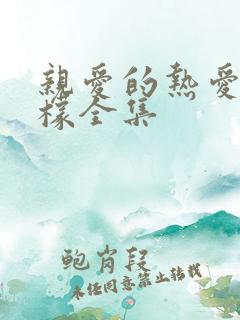 親愛的熱愛
樣全集
鮑肖段
未经同意禁止转载